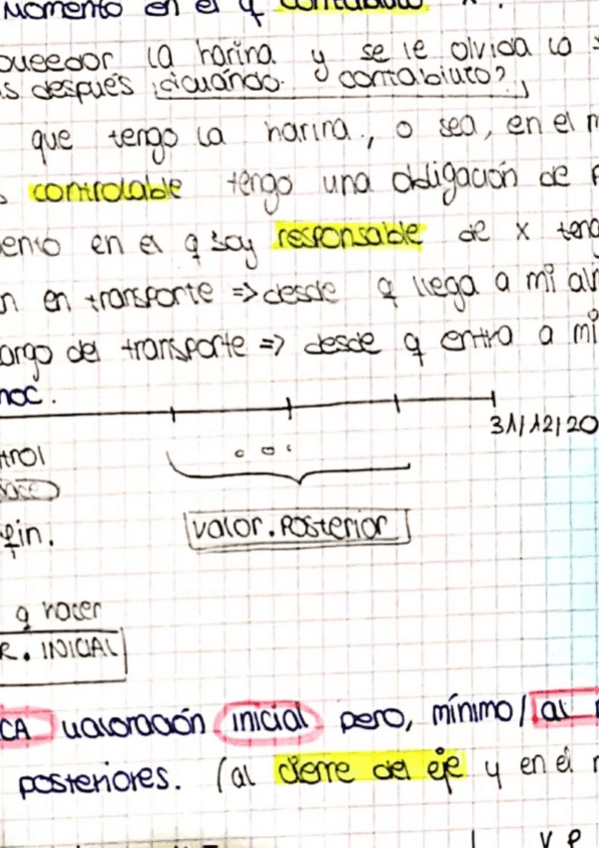 Momento en el q contabilizo x.
la harina y se le olvida la
s después ¿cuándo contabilizo?
que tengo la harina, o sea, en el m
controlable tengo una obligación de p
en el q soy responsable de x teng
n en transporte => desde q llega a mi al
argo del transporte => desde q entra a mi
noc.
31/12/20
trol
fin.
valor. Posterior
q hacer
R. INICIAL
CA valoración inicial pero, mínimo/ al
posteriores. (al cierre del eje y en el m
V P